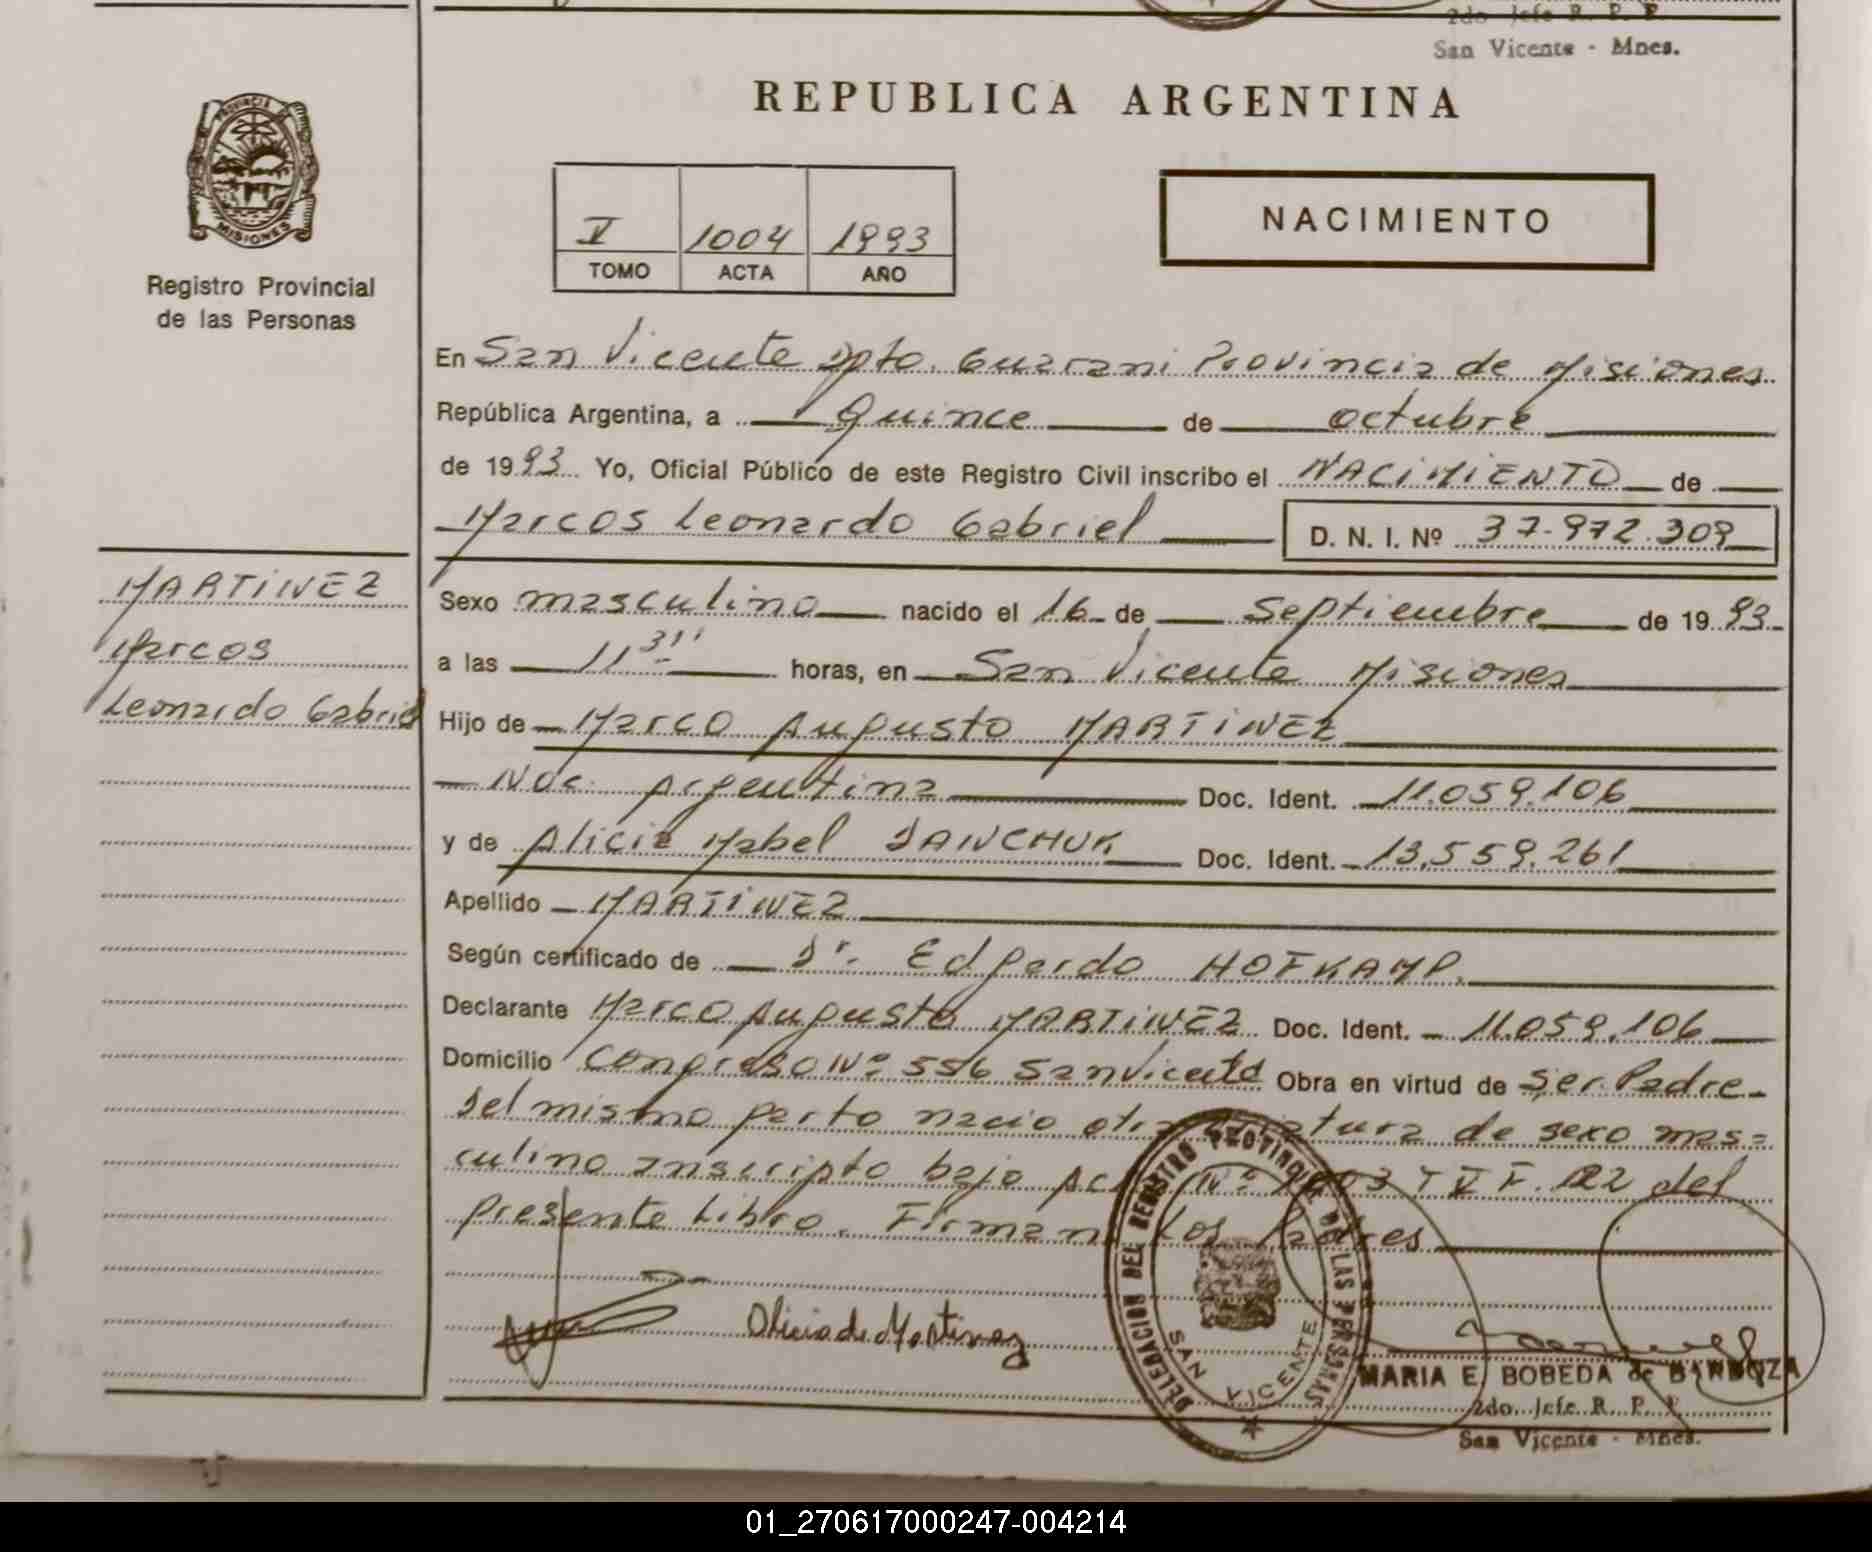 2do Jefe R. P. P.
San Vicente - Mnes.
REPUBLICA ARGENTINA
PROVINCIA
MISIONES
Registro Provincial
de las Personas
V 1004 1993
TOMO ACTA AÑO
NACIMIENTO
En San Vicente Dpto. Guarani Provincia de Misiones
República Argentina, a Quince de octubre
de 1993 Yo, Oficial Público de este Registro Civil inscribo el NACIMIENTO de
Marcos Leonardo Gabriel D. N. I. Nº 37.972.309
MARTINEZ
Marcos
Leonardo Gabriel
Sexo masculino nacido el 16 de Septiembre de 1993
a las 11 31' horas, en San Vicente Misiones
Hijo de Marco Augusto MARTINEZ
Nac. Argentina Doc. Ident. 11.059.106
y de Alicia Mabel DANCHUK Doc. Ident. 13.559.261
Apellido MARTINEZ
Según certificado de Dr. Edgardo HOFKAMP.
Declarante Marco Augusto MARTINEZ Doc. Ident. 11.059.106
Domicilio Congreso Nº 556 San Vicente Obra en virtud de ser Padre
Del mismo parto nacio otra criatura de sexo mas=
culino inscripto bajo Acta Nº 1003 T V F. 122 del
presente Libro. Firman Los Padres
Alicia de Martinez
DELEGACION DEL REGISTRO PROVINCIAL DE LAS PERSONAS
SAN VICENTE
MARIA E. BOBEDA de BARBOZA
2do. Jefe R. P. P.
San Vicente - Mnes.
01_270617000247-004214